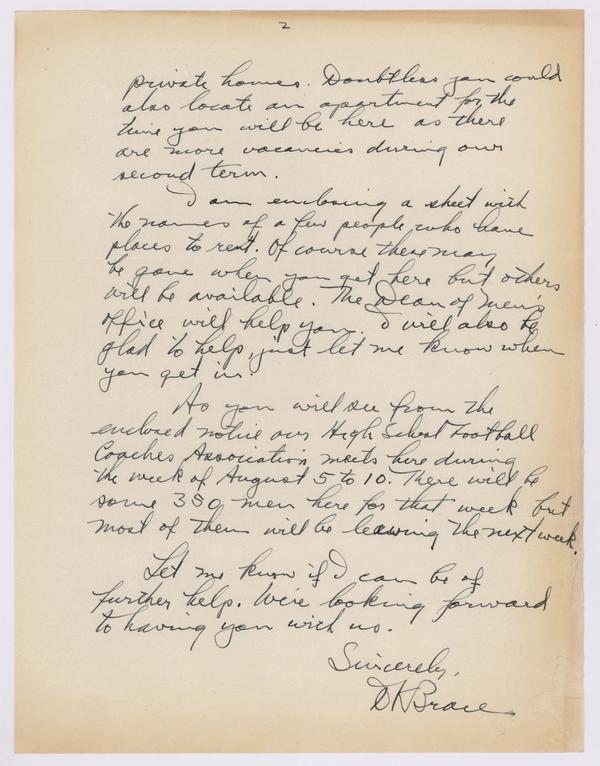 2
private homes. Doubtless you could
also locate an apartment for the
time you will be here as there
are more vacancies during our
second term.
I am enclosing a sheet with
the names of a few people who have
places to rent. Of course these may
be gone when you get here but others
will be available. The Dean of Men's
office will help you. I will also be
glad to help, just let me know when
you get in.
As you will see from the
enclosed notice our High School Football
Coaches Association meets here during
the week of August 5 to 10. There will be
some 350 men here for that week but
most of them will be leaving the next week.
Let me know if I can be of
further help. We're looking forward
to having you with us.
Sincerely,
DKBrace